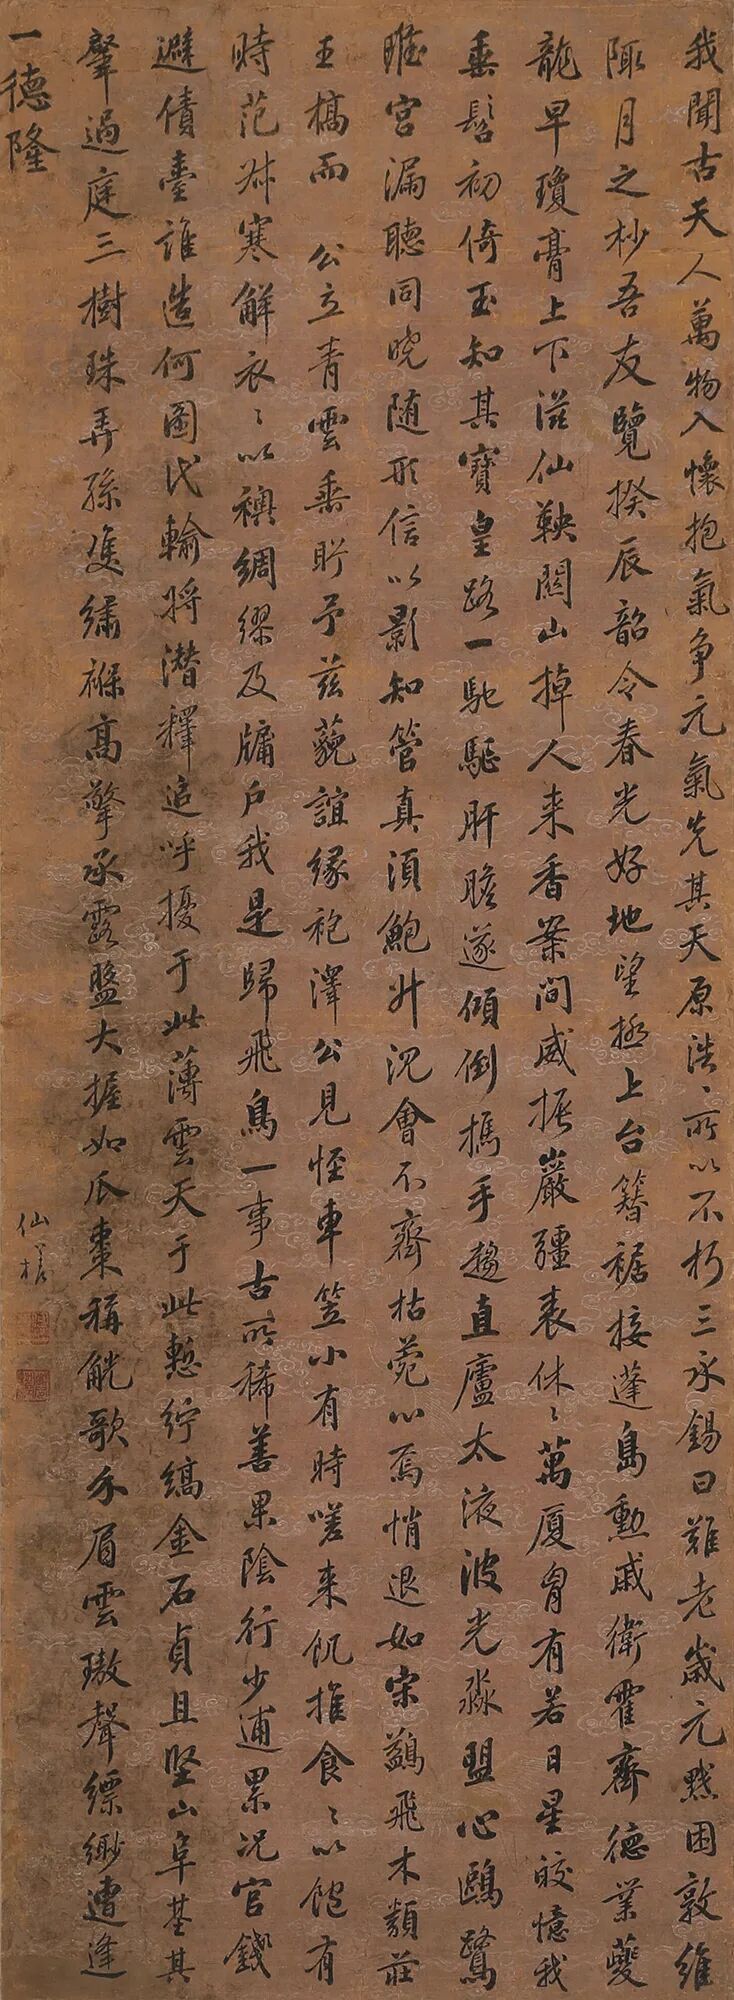 我聞古天人萬物入懷抱氣爭元氣先其天原浩〻所以不朽三永錫曰難老歲元黓困敦維
陬月之杪吾友覽揆辰韶令春光好地望極上台簪裾接蓬島勳戚衛霍齊德業夔
龍早瓊膏上下滋仙鞅關山掉人來香案間威振嚴疆表休〻萬厦胷有若日星皎憶我
垂髫初倚玉知其寶皇路一馳驅肝膽遂傾倒攜手趨直廬太液波光淼盟心鷗鷺
睢宮漏聽同曉随形信以影知管真湏鮑升沉會不齊枯菀心焉悄退如宋鷁飛木類莊
王槁而公立青雲垂盻予茲藐誼緣袍澤公見怪車笠小有時嗟來飢推食〻以飽有
時范叔寒解衣〻以襖綢繆及牖户我是歸飛鳥一事古所稀善果陰行少逋累况官錢
避債臺誰造何圖代輸將潛釋追呼擾于此薄雲天于此慙紵縞金石貞且堅山阜基其
肇過庭三樹珠弄孫雙繡褓高擎承露盤大握如瓜棗稱觥歌介眉雲璈聲縹緲遭逢
一德隆
仙槎